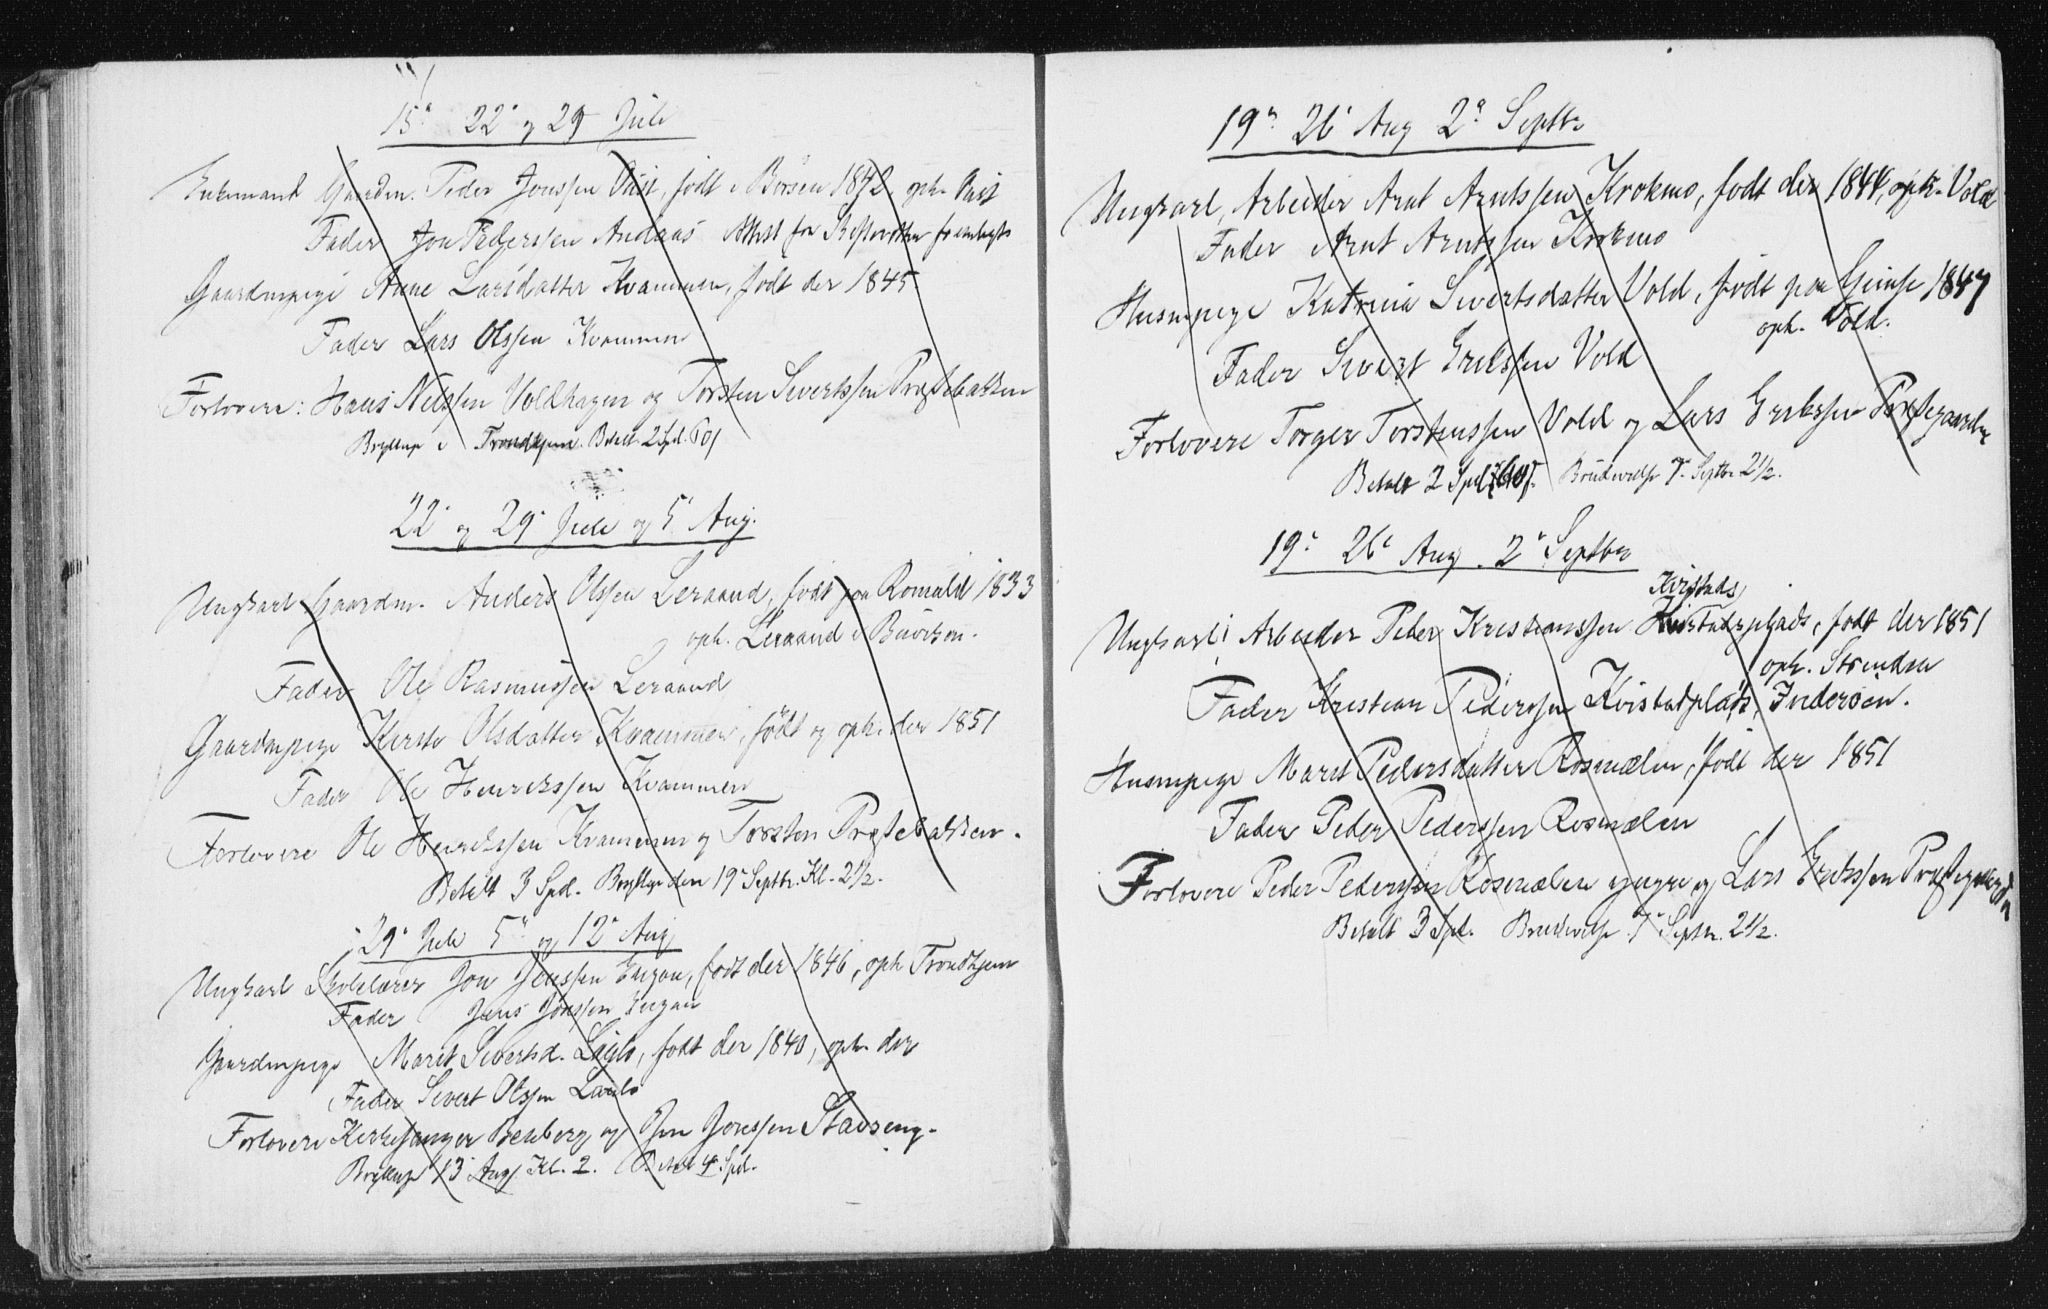 15de 22de og 29de Juli
Enkemand Gaardm. Peder Jonssen Øust, født i Børsen 1842, oph. Øust
Fader Jon Pederssen Attest fra Skifteretten fremlagt
Gaardmpige Anne Larsdatter Kvammen, født der 1845
Fader Lars Olssen Kvammen
Forlovere: Hans Nilssen Voldhagen og Torsten Sivertssen Præstebakken
Bryllup i Trondhjem. Betalt 2 Spd. 60
22de og 29de Juli og 5te Aug.
Ungkarl Gaardm. Anders Olssen Leraand, født paa Romuld 1833
oph. Leraand i Buviken.
Fader Ole Rasmussen Leraand
Gaardmpige Kirsti Olsdatter Kvammen, født og oph. der 1851
Fader Ole Henrikssen Kvammen
Forlovere Ole Henrikssen Kvammen og Torsten Præstebakken.
Betalt 3 Spd. Bryllup den 19de Septbr. Kl. 2½.
29de Juli 5te og 12te Aug
Ungkarl Skolelærer Jon Jenssen Engan, født der 1846, oph Trondhjem
Fader Jens Jonssen Engan
Gaardmpige Marit Sivertsd. Ligla, født der 1840, oph. der
Fader Sivert Olssen
Forlovere Kirkesanger Benberg og Jon Jonssen Stavseng.
Bryllup 13 Aug. Kl. 2. Betalt 4 Spd.
19de 26de Aug 2den Septbr
Ungkarl, Arbeider Arnt Arntssen Krokmo, født der 1844, oph. Vold
Fader Arnt Arntssen Krokmo
Husmpige Katrina Sivertsdatter Vold, født paa Gimse 1847
oph. Vold.
Fader Sivert Erikssen Vold
Forlovere Torger Torstenssen Vold og Lars Erikssen Præstegaarden
Betalt 2 Spd 60. Brudevielse 7de Septbr. 2½.
19de 26de Aug. 2den Septbr
Kvistads
Ungkarl Arbeider Peder Kristianssen Kvistadplads, født der 1851
oph. Strinden
Fader Kristian Pederssen Kvistadplads, Inderøen.
Husmpige Marit Pedersdatter Rosmælen, født der 1851
Fader Peder Pederssen Rosmælen
Forlovere Peder Pederssen Rosmælen yngre og Lars Erikssen Præstegaarden
Betalt 3 Spd. Brudevielse 7de Septbr. 2½.